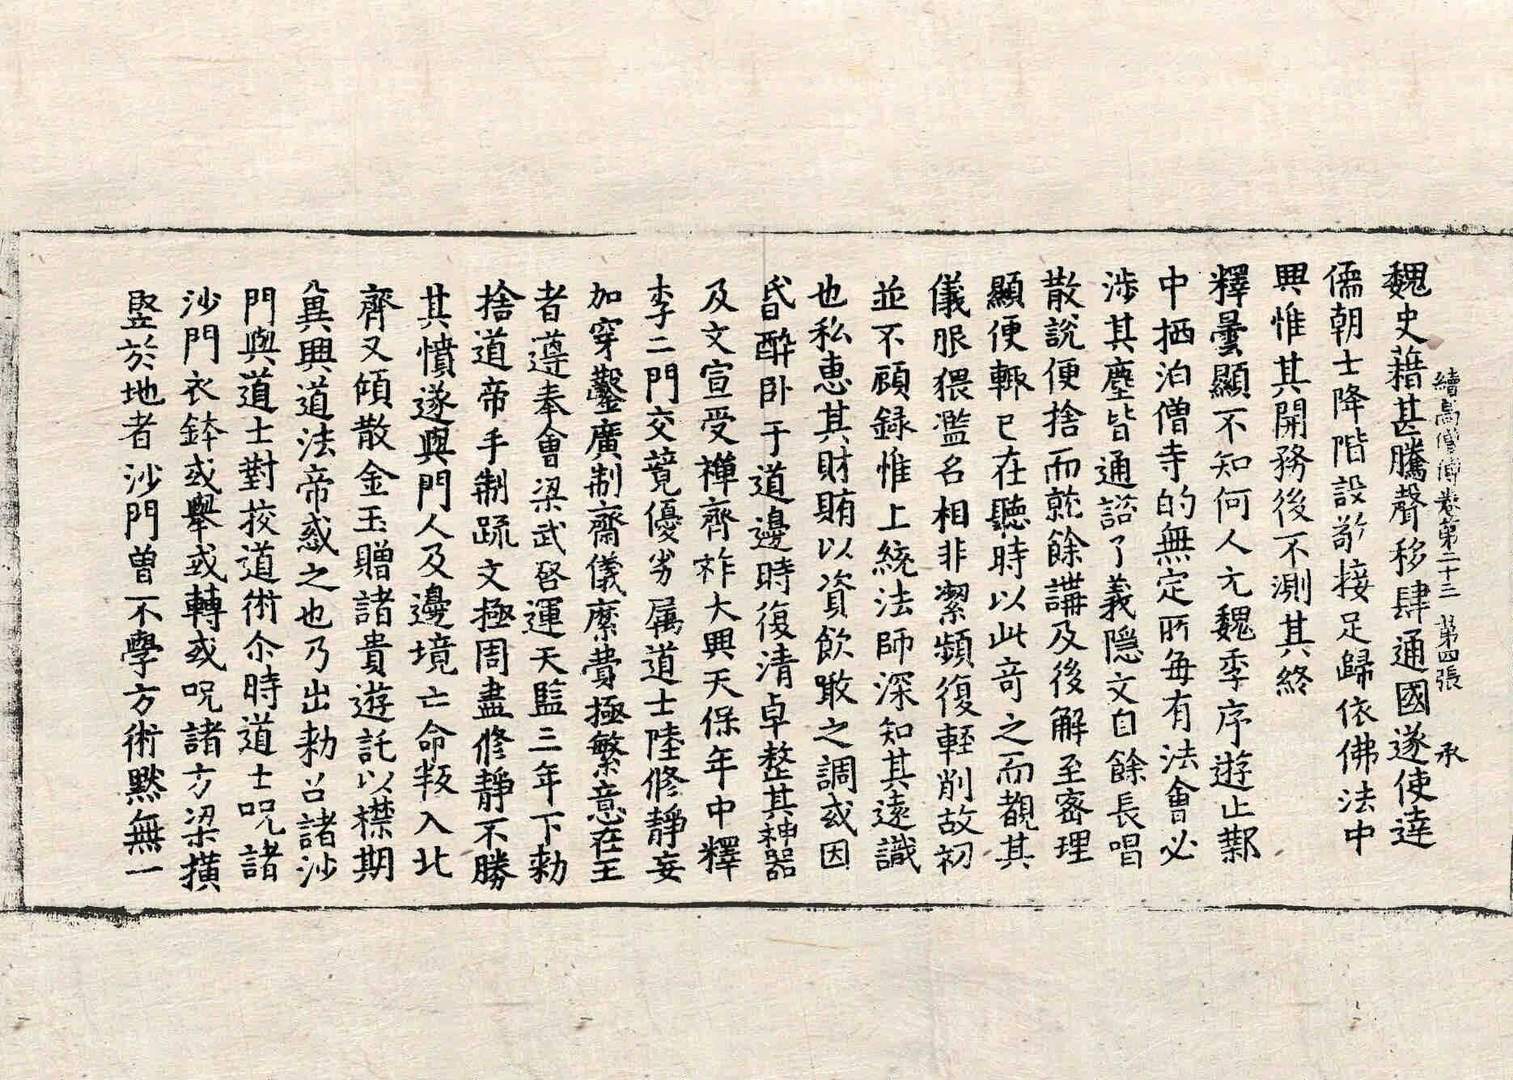 續高僧傳卷第二十三 第四張 承
魏史藉甚騰聲移肆通國遂使達
儒朝士降階設敬接足歸依佛法中
興惟其開務後不測其終
釋曇顯不知何人元魏季序遊止鄴
中栖泊僧寺的無定所每有法會必
涉其塵皆通諮了義隱文自餘長唱
散說便捨而就餘講及後解至密理
顯便輒已在聽時以此竒之而覩其
儀服猥濫名相非潔頻復輕削故初
並不顧録惟上統法師深知其遠識
也私惠其財賄以資飲噉之調或因
昏醉卧于道邊時復清卓整其神器
及文宣受禪齊祚大興天保年中釋
李二門交競優劣屬道士陸修靜妄
加穿鑿廣制齋儀縻費極繁意在王
者遵奉會梁武啓運天監三年下勑
捨道帝手制疏文極周盡修靜不勝
其憤遂與門人及邊境亡命叛入北
齊又傾散金玉贈諸貴遊託以襟期
兾興道法帝惑之也乃出勑召諸沙
門與道士對挍道術尒時道士呪諸
沙門衣鉢或舉或轉或呪諸方梁撗
竪於地者沙門曾不學方術黙無一